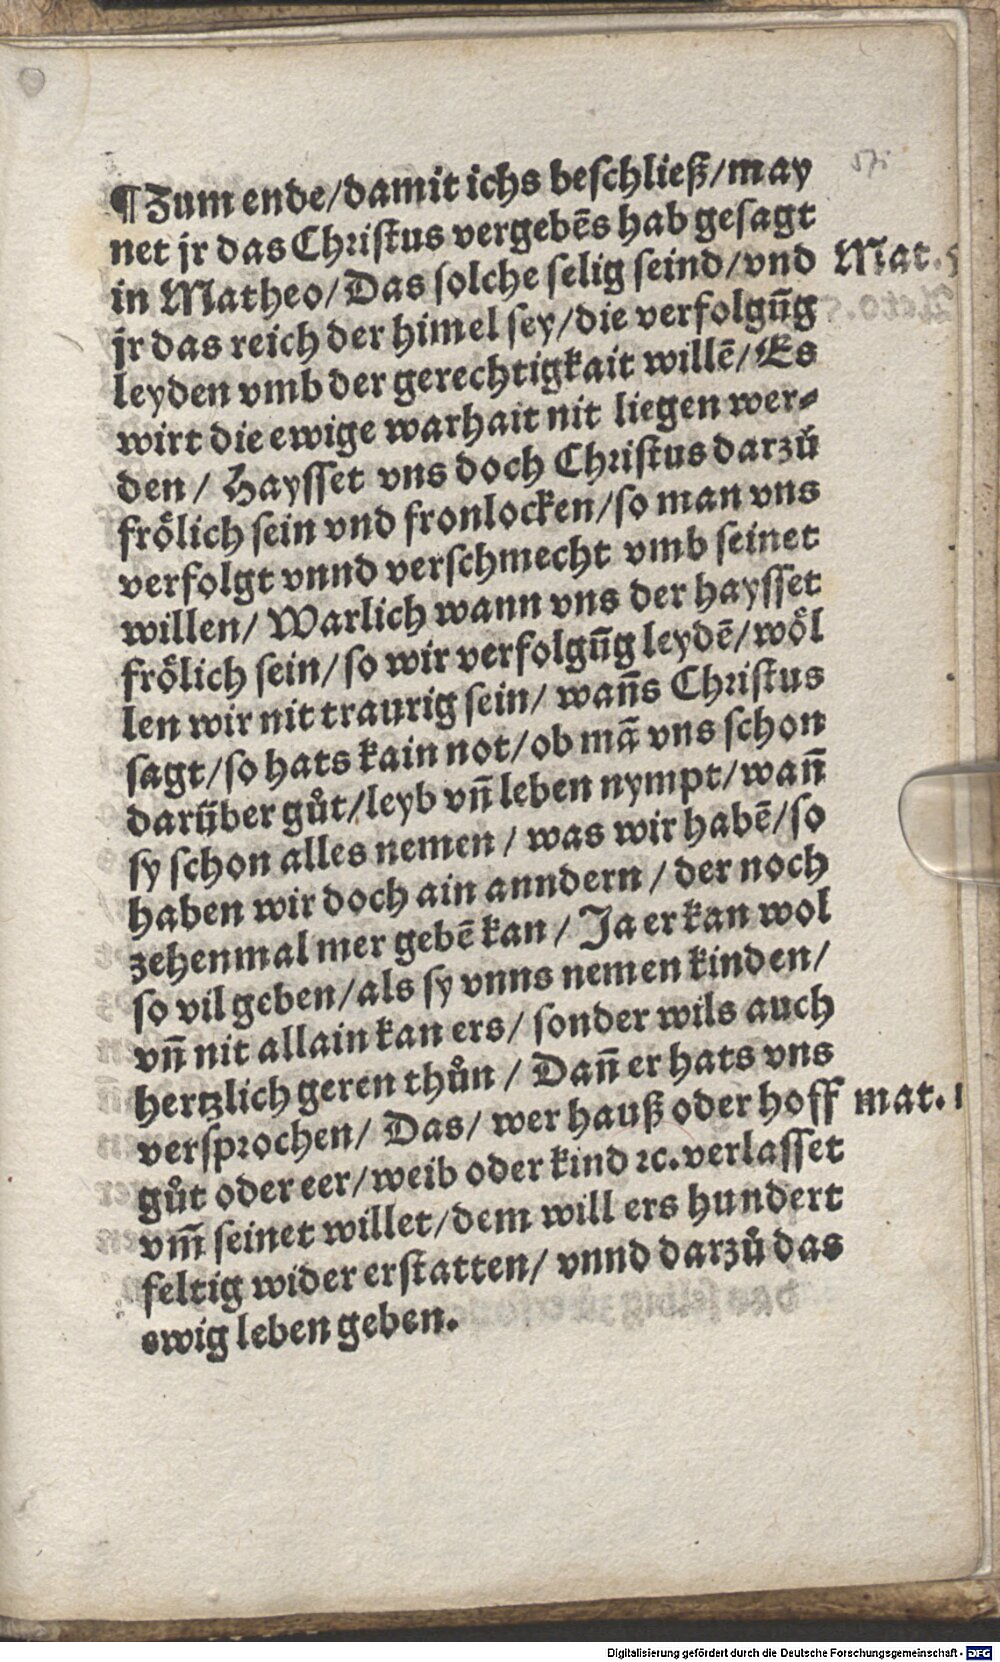 ¶Zum ende/damit ichs beschließ/may
net jr das Christus vergebēs hab gesagt
in Matheo/Das solche selig seind/vnd
Mat. 5
jr das reich der himel sey/die verfolgūg
leyden vmb der gerechtigkait willē/Es
wirt die ewige warhait nit liegen wer⸗
den/ Haysset vns doch Christus darzů
frölich sein vnd fronlocken/so man vns
verfolgt vnnd verschmecht vmb seinet
willen/ Warlich wann vns der haysset
frölich sein/so wir verfolgūg leydē/wöl
len wir nit traurig sein/ wañs Christus
sagt/so hats kain not/ob mā vns schon
darüber gůt/leyb vñ leben nympt/wañ
sy schon alles nemen/ was wir habē/so
haben wir doch ain anndern/ der noch
zehenmal mer gebē kan/ Ja er kan wol
so vil geben/als sy vnns nemen kinden/
vñ nit allain kan ers/ sonder wils auch
hertzlich geren thůn/ Dañ er hats vns
versprochen/ Das/ wer hauß oder hoff
mat. 1
gůt oder eer/weib oder kind ꝛc. verlasset
vm̄ seinet willet/dem will ers hundert
feltig wider erstatten/ vnnd darzů das
ewig leben geben.
Digitalisierung gefördert durch die Deutsche Forschungsgemeinschaft - DFG